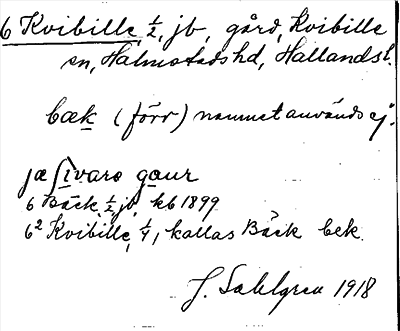 6 Kvibille, 1/2, jb, gård, Kvibille
sn, Halmstads hd, Hallands l.
bæk (förr) namnet används ej.
jæ sivars gaur
6 Bäck, 1/2 jb, kb 1899
6² Kvibille, 1/4, kallas Bäck bek.
J. Sahlgren 1918